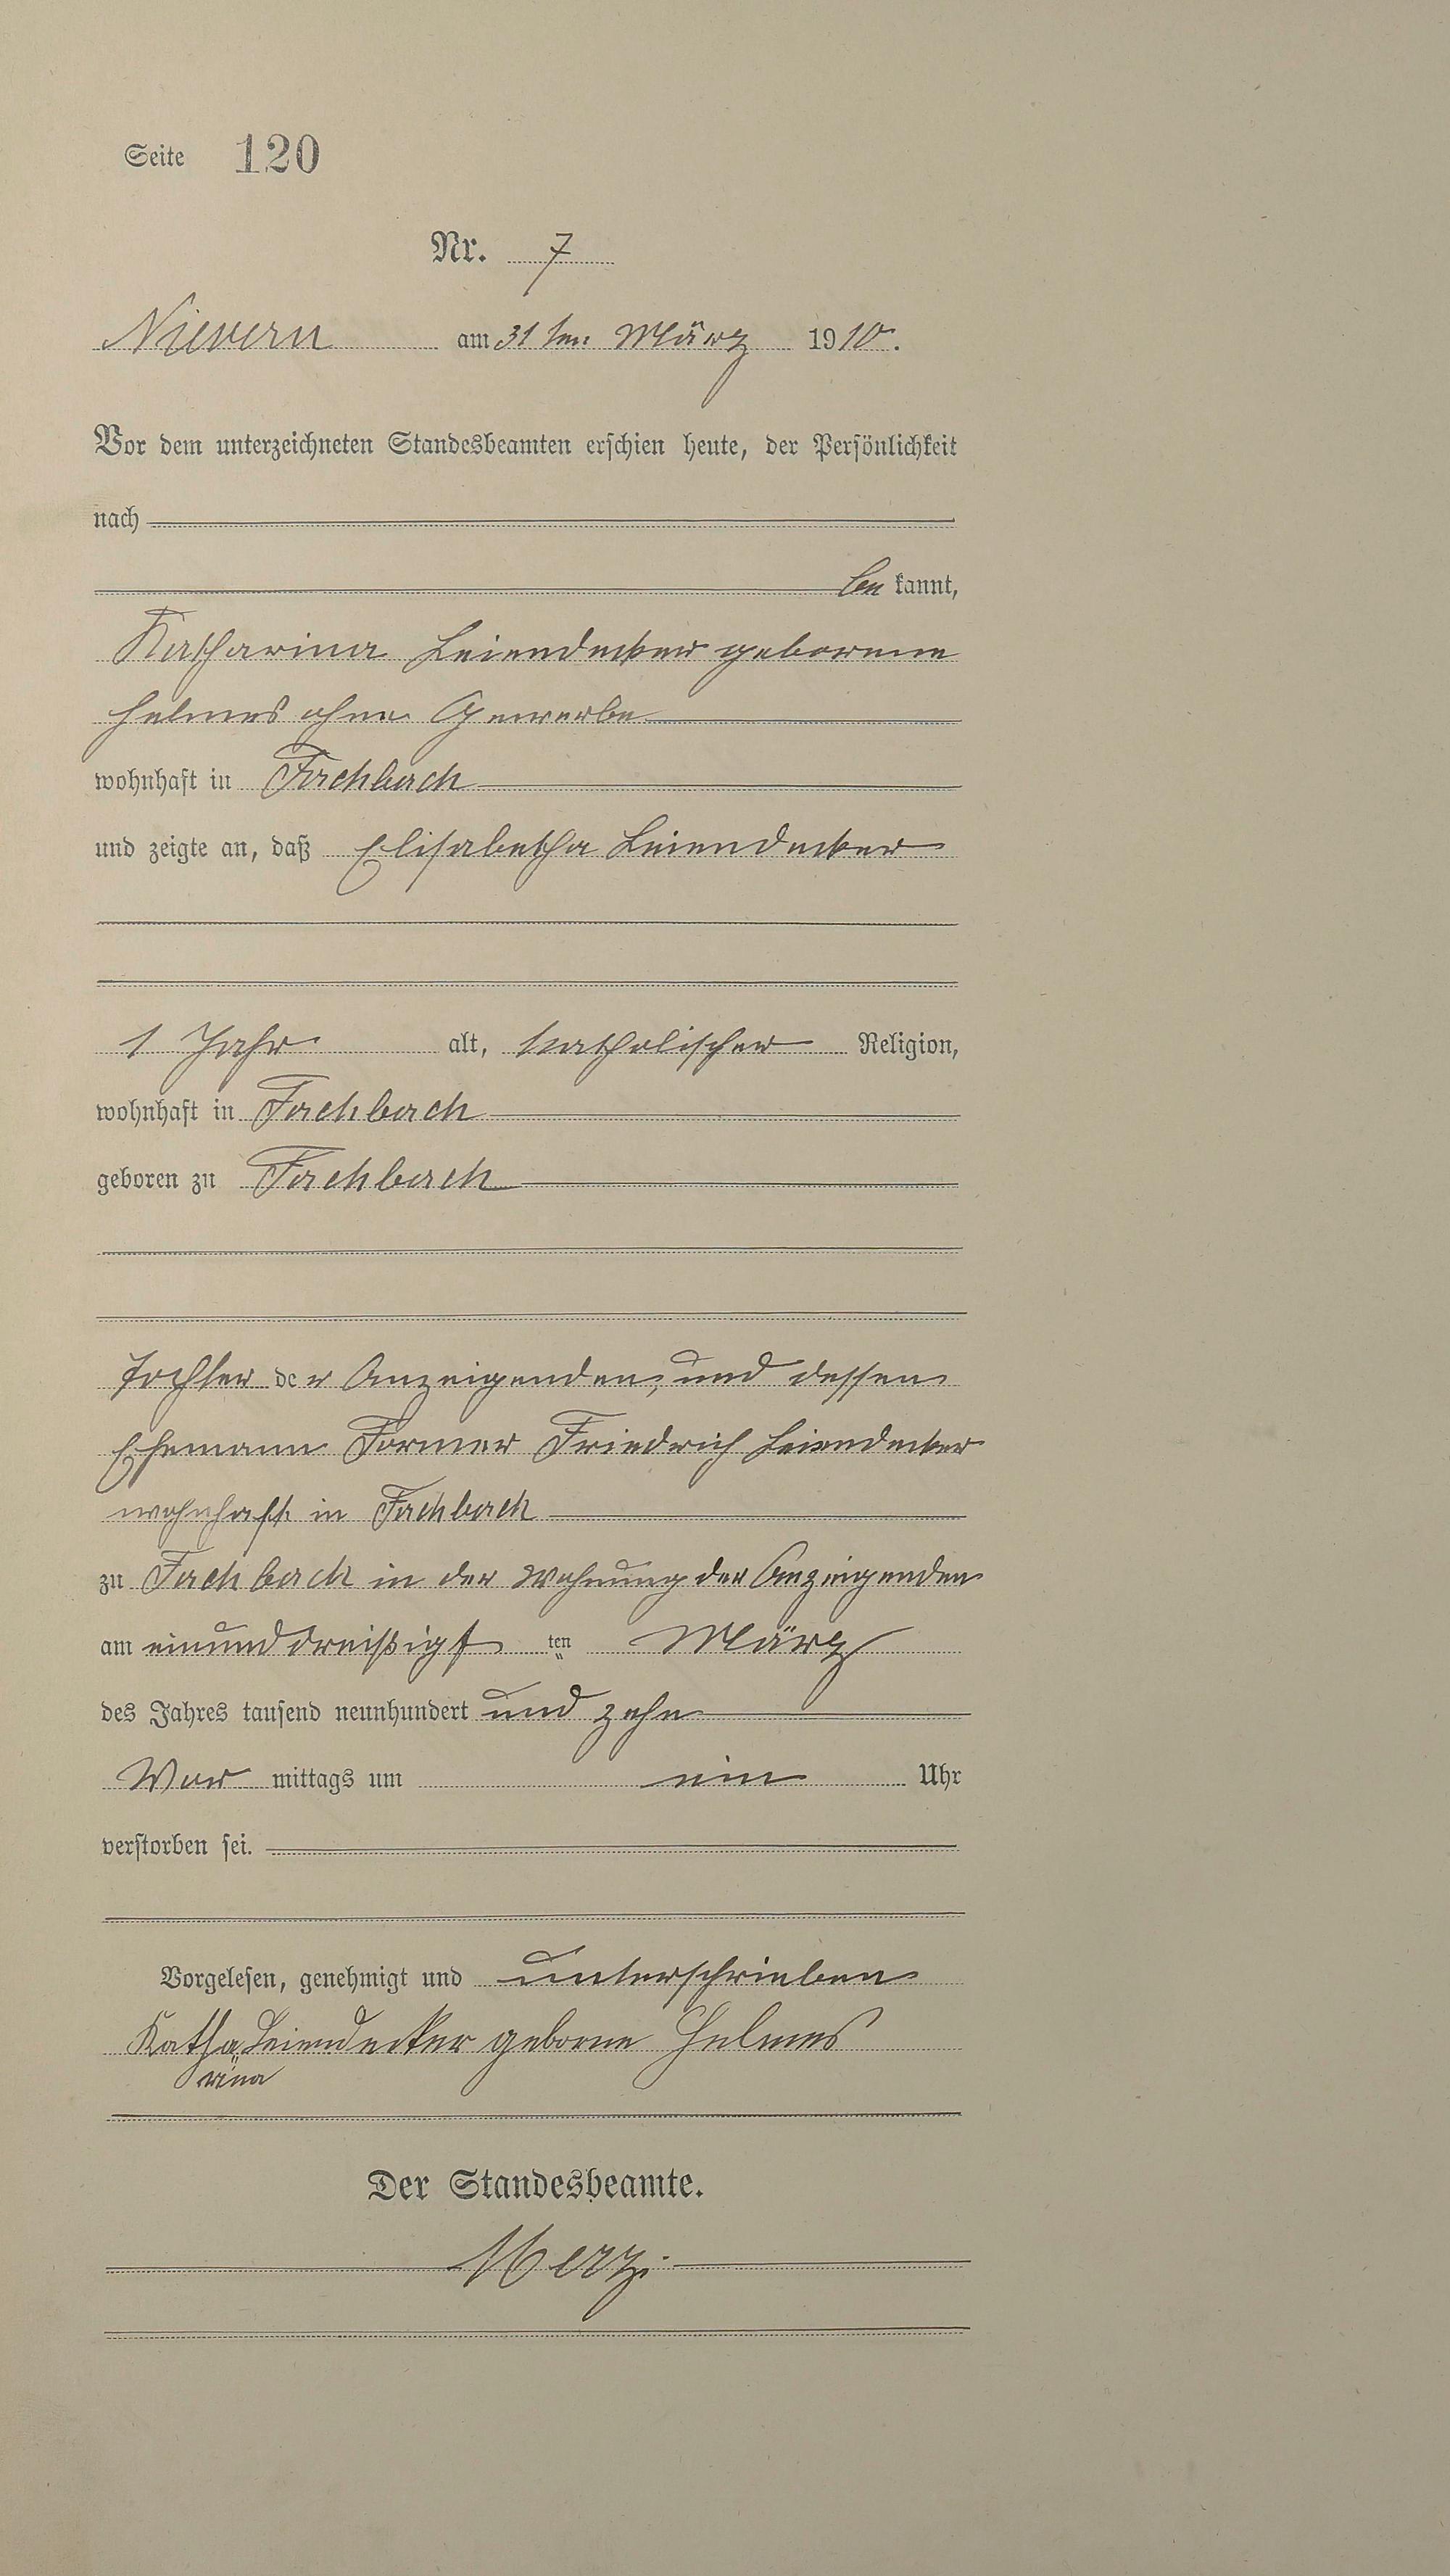 Seite 120
Nr. 7
Nievern am 31ten März 1910.
Vor dem unterzeichneten Standesbeamten erschien heute, der Persönlichkeit
nach
be kannt,
Katharina Leiendecker geborene
Helmes ohne Gewerbe
wohnhaft in Fachbach
und zeigte an, daß Elisabetha Leiendecker
1 Jahr alt, katholischer Religion,
wohnhaft in Fachbach
geboren zu Fachbach
Tochter der Anzeigenden, und dessen
Ehemann Former Friedrich Leiendecker
wohnhaft in Fachbach
zu Fachbach in der Wohnung der Anzeigenden
am einunddreißigsten März
des Jahres tausend neunhundert und zehn
Vor mittags um ein Uhr
verstorben sei.
Vorgelesen, genehmigt und unterschrieben
Katha Leiendecker geborne Helmes
rina
Der Standesbeamte.
Merz.